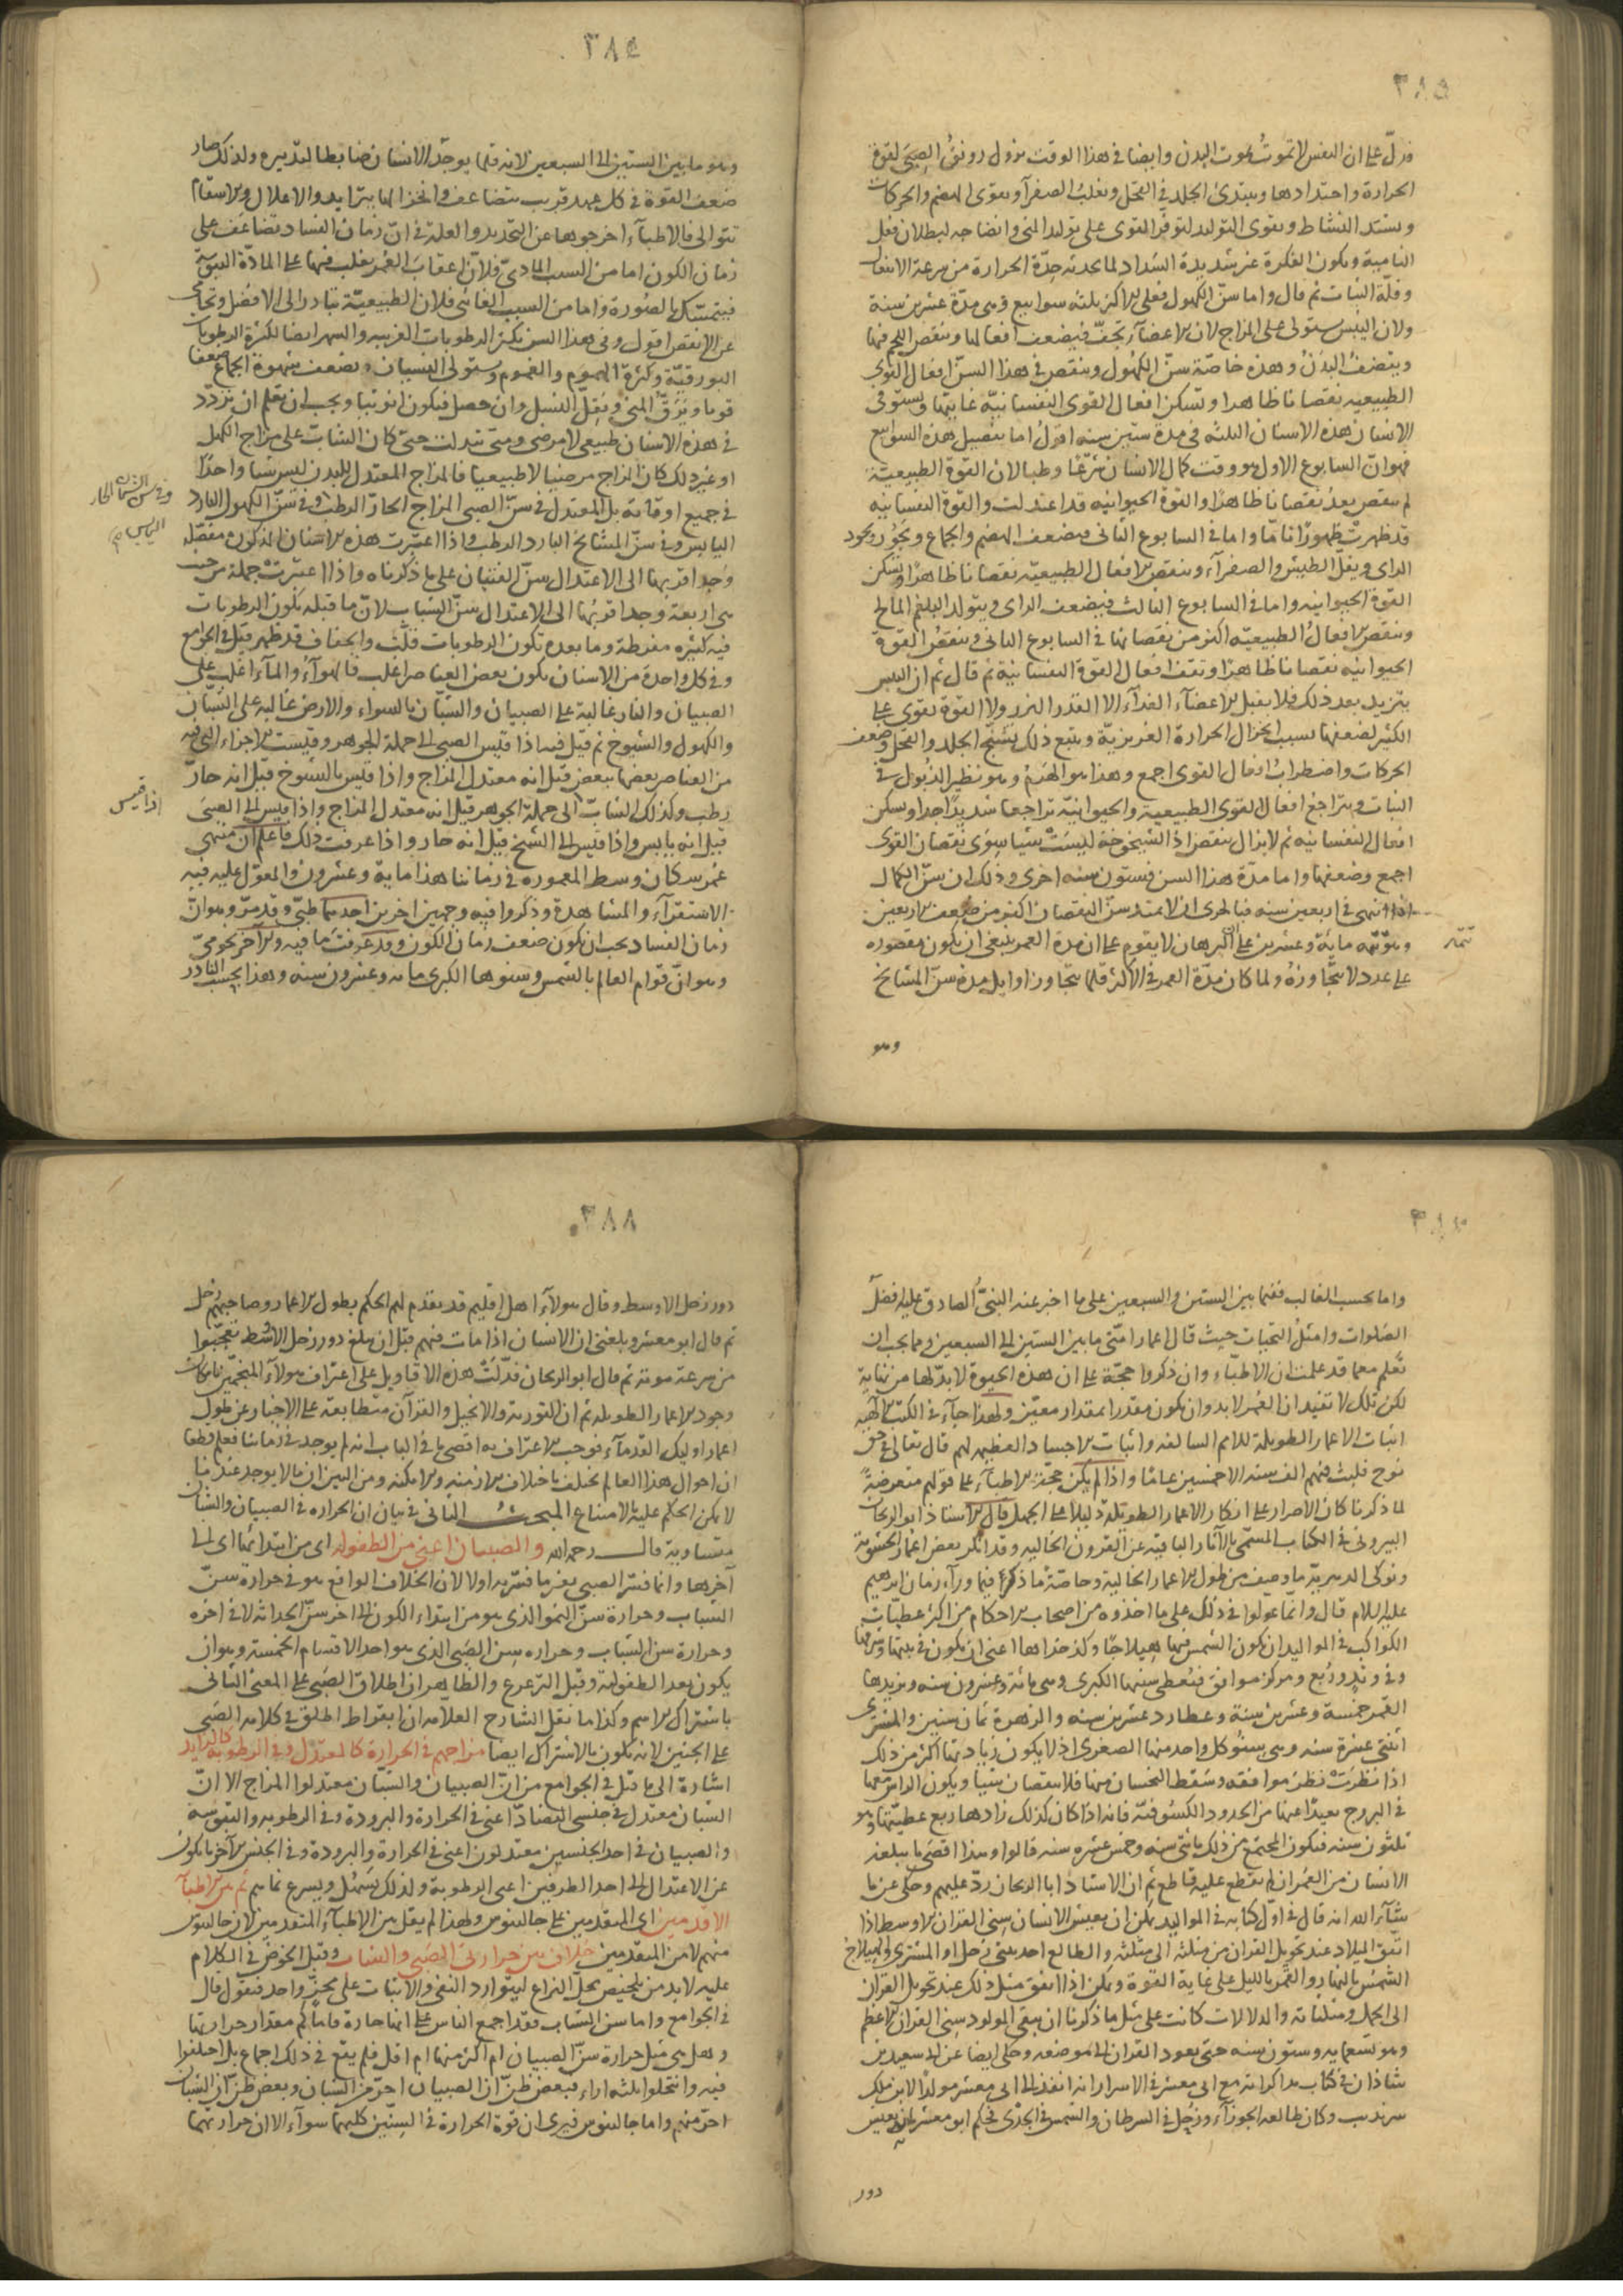 ٣٨٥
ودلّ على ان النفس لا تموت بموت البدن وايضا في هذا الوقت يزول رونق الصبى لقوة
الحرارة واحتدادها ويبتدئ الجلد في القحل وتغلب الصفرآء ويقوى الهضم والحركات
ويشتد النشاط ويقوى التوليد لتوفّر القوى على توليد المنى وانضاجه لبطلان فعل
النامية ويكون الفكرة غير شديدة السّداد لما يحدثه حِدّة الحرارة من سرعة الانتقال
وقلّة الثبات ثم قال واما سنّ الكهول فعلى الاكثر ثلثه سوابيع وهى مدّة عشرين سنة
ولان اليبس يستولى على المزاج لان الاعضآء تجفّ فيضعف افعالها وينقص اللحم فيها
ويقضف البدن وهذه خاصّة سنّ الكهول وينقص في هذا السنّ افعال القوى
الطبيعيه نقصانا ظاهرا وتسكن افعال القوى النفسانيّة غايتها ويستوفى
الانسان هذه الاسنان الثلثه في مدة ستين سنه اقول اما تفصيل هذه السوابيع
فهو انّ السابوع الاول هو وقت كمال الانسان شرعًا وطبا لان القوة الطبيعيّة
لم تنقص بعدُ نقصانا ظاهرًا والقوة الحيوانيه قد اعتدلت والقوة النفسانيه
قد ظهرت ظهورًا تامّا واما في السابوع الثانى فيضعف الهضم والجماع ويجوّد
الراى ويقل الطيش والصفرآء وينقص الافعال الطبيعيّه نقصانا ظاهرًا وتسكن
القوة الحيوانيه واما في السابوع الثالث فيضعف الراى ويتولد البلغم المالح
وينقص الافعالُ الطبيعيّه اكثر من نقصانها في السابوع الثانى وينقصُ القوة
الحيوانيه نقصانا ظاهرًا وتقف افعال القوة النفسانية ثم قال ثم ان اليبس
يتزيد بعد ذلك فلا يقبل الاعضآء الغذآء الا القدر النزر ولا القوة تقوى على
الكثير لضعفها بسبب انخزال الحرارة الغريزيّة ويتبع ذلك تشنّج الجلد والقحل وضعف
الحركات واضطرابُ افعال القوى اجمع وهذا هو الهَرَمُ وهو نظير الذُبول في
النبات ويتراجع افعال القوى الطبيعية والحيوانيّة تراجعا شديدًا جدا ويسكن
افعال النفسانيه ثم لا يزال ينقص اذ الشيخوخة ليست شيا سوى نقصان القوى
اجمع وضعفها واما مدّة هذا السن فستون سنه اخرى وذلك ان سنّ الكمال
اذا انتهى في اربعين سنه فبالحرى ان لا يمتد سنّ النقصان اكثر من ضعف الاربعين
وهو تتمّه مائة وعشرين على ان البرهان لا يقوم على ان مدة العمر ينبغى ان يكون مقصوره
تتمّه
على عدد لا يتجاوزهُ ولما كان مدّة العمر في الاكثر قلما يتجاوز اوايل مدة سنّ المشايخ
وهو
٣٨٦
وهو ما بين الستين الى السبعين لانه قلما يوجد الانسان ضابطا لتدبيره ولذلك صار
ضعف القوة في كل عهد قريب يتضاعف وانخزالها يتزايد والاعلال والاسقام
تتوالى فالاطبآء اخرجوها عن التحديد والعلة في انّ زمان الفساد تضاعف على
زمان الكون اما من السبب المادىّ فلانّ اعقاب العمر يغلب فيها على المادّة اليبوسة
فيتمسّك بالصورة واما من السبب الغائى فلان الطبيعيّة تبادر الى الافضل وتجافى
عن الانقص اقول وفي هذا السن يكثر الرطوبات الغريبه والسهر ايضا لكثرة الرطوبات
البورقيّة وكثرة الهموم والغموم ويستولى النسيان ويضعف شهوة الجماع ضعفا
قويا ويَرِقّ المنى ويقلّ النسل وان حصل فيكون انوثيا ويجب ان تعلم ان تردّد
في هذه الاسنان طبيعى لا مرضى ومتى تبدلت حتى كان الشابّ على مزاج الكهل
او غير ذلك كان المزاج مرضيا لا طبيعيا فالمزاج المعتدل للبدن ليس شيا واحدًا
في جميع اوقاته بل المعتدل في سنّ الصبى المزاج الحارّ الرطب وفي سنّ الكهول البارد
وفي سن الشبان الحار
اليابس
اليابس وفي سنّ المشايخ البارد الرطب واذا اعتبرت هذه الاسنان المذكورة مفصّله
وجد اقربها الى الاعتدال سنّ الفتيان على ما ذكرناه واذا اعتبرت جملة من حيث
هى اربعة وجد اقربُها الى الاعتدال سنّ الشباب لانّ ما قبله تكون الرطوبات
فيه كثيره مفرطة وما بعده تكون الرطوبات قلّت والجفاف قد ظهر قيل في الجوامع
وفي كل واحدة من الاسنان يكون بعض العناصر اغلب فالهوآءُ والمآء اغلب على
الصبيان والنار غالبة على الصبيان والشبّان بالسواء والارض غالبه على الشبّان
والكهول والشيوخ ثم قيل فيه اذا قيس الصبى الى جملة الجوهر وقيست الاجزاء التى فيه
من العناصر بعضها ببعض قيل انه معتدل المزاج واذا قيس بالشيوخ قيل انه حارّ
رطب وكذلك الشابّ الى جملة الجوهر قيل انه معتدل المزاج واذا قيس الى الصبى
اذا قيس
قيل انه يابس واذا قيس الى الشيخ قيل انه حار واذا عرفت ذلك فاعلم ان منتهى
عمر سكان وسط المعموره في زماننا هذا مايه وعشرون والمعوّل عليه فيه
الاستقرآء والمشاهدة وذكروا فيه وجهين اخرين احدهما طبّى وقد مرّ وهو انّ
زمان الفساد يجب ان يكون ضعف زمان الكون وقد عرفت ما فيه والاخر نجومىّ
وهو انّ قوام العالم بالشمس وسنوها الكبرى مايه وعشرون سنه وهذا بحسب النادر
واما بحسب الغالب ففيما بين الستين والسبعين على ما اخبر عنه النبىّ الصادق عليه افضل
الصلوات وامثلُ التحيات حيث قال اعمار امّتى ما بين الستين الى السبعين ومما يجب ان
تعلم معما قد علمت ان الاطبّاء وان ذكروا حجّة على ان هذه الحيوة لا بدّ لها من نهاية
لكن تلك لا تفيد ان العُمر لا بد وان يكون مقدرا بمقدار معيّن ولهذا جآء في الكتب الآلهيّه
اثبات الاعمار الطويلة للامم السالفه واثبات الاجساد العظيمه لهم قال تعالى في حق
نوح فلبث فيهم الف سنه الا خمسين عاما واذا لم يكن حجّة الاطبآء على قولهم متعرضةً
لما ذكرنا كان الاصرار على انكار الاعمار الطويلة دليلا على الجهل قال الاستاذ ابو الريحان
البيرونى في الكتاب المسمّى بالآثار الباقيه عن القرون الخاليه وقد انكر بعض اغمار الحشويّة
ونوكى الدهريّه ما وصف من طول الاعمار الخالية وخاصّة ما ذكر فيما ورآء زمان ابرهيم
عليه السلام قال وانّما عولوا في ذلك على ما اخذوه من اصحاب الاحكام من اكثر عطيّات
الكواكب في المواليد ان يكون الشمس فيها هيلاجًا وكدخداها اعنى ان يكون في بيتها وشرفها
وفي وتد ورُبع ومركز موافق فتُعطى سنيها الكبرى وهى مائة وعشرون سنه ويزيدها
القمر خمسة وعشرين سنة وعطارد عشرين سنه والزهرة ثمان سنين والمشترى
اثنتى عشرة سنه وهى سنُو كل واحد منها الصغرى اذ لا يكون زيادتها اكثر من ذلك
اذا نظرت نظر موافقه وسَقط النحسان منها فلا ينقصان شيا ويكون الراس معها
في البروج بعيدًا عنها من الحدود الكسُوفيّه فانه اذا كان كذلك زادها ربع عطيّتها وهو
ثلثون سنه فيكون المجتمع من ذلك مائتى سنه وخمس عشره سنه قالوا وهذا اقصى ما يبلغه
الانسان من العُمر ان لم يقطع عليه قاطع ثم ان الاستاذ ابا الريحان ردّ عليهم وحكى عن ما
شآء الله انه قال في اوّل كتابه في المواليد يمكن ان يعيش الانسان سنى القران الاوسط اذا
اتفق الميلاد عند تحويل القران من مثلثه الى مثلثه والطالع احد بيتى زحل او المشترى والهيلاج
الشمس بالنهار والقمر بالليل على غاية القوة ويمكن اذا اتفق مثل ذلك عند تحويل القران
الى الحمل ومثلثاته والدلالات كانت على مثل ما ذكرنا ان يبقى المولود سنى القران الاعظم
وهو تسعمايه وستون سنه حتى يعود القران الى موضعه وحكى ايضا عن ابى سعيد بن
شاذان في كتاب مذاكراته مع ابى معشر في الاسرار انه انفذ الى ابى معشر مولدٌ لابن ملك
سرنديب وكان طالعه الجوزآء وزحل في السرطان والشمس في الجدى فحكم ابو معشر انه يعيش
دور
٣٨٨
دور زحل الاوسط وقال هولآء اهل اقليم قد تقدم لهم الحكم بطول الاعمار وصاحبهم زحل
ثم قال ابو معشر وبلغنى ان الانسان اذا مات فيهم قبل ان يبلغ دور زحل الاوسط تعجّبوا
من سرعة موته ثم قال ابو الريحان فدلّت هذه الاقاويل على اعتراف هولآء المنجمين بامكان
وجود الاعمار الطويله ثم ان التورية والانجيل والقرآن متطابقه على الاخبار عن طول
اعمار اوليك القدمآء فوجب الاعتراف به اقصى ما في الباب انه لم يوجد في زماننا فعلم قطعا
ان احوال هذا العالم تختلف باختلاف الازمنه والامكنه ومن البين ان ما لا يوجد عندنا
لا يمكن الحكم عليه بالامتناع المبحث الثانى في بيان ان الحراره في الصبيان والشبان
متساوية قال رحمه الله والصبيان اعنى من الطفوله اى من ابتدائها الى
آخرها وانما فسّر الصبى بغير ما فسّر به اولا لان الخلاف الواقع هو في حراره سنّ
الشباب وحرارة سنّ النمو الذى هو من ابتداء الكون الى اخر سنّ الحداثه لا في اخره
وحرارة سن الشباب وحراره سن الصبى الذى هو احد الاقسام الخمسة وهو ان
يكون بعد الطفوليّة وقبل الترعرع والظاهر ان اطلاق الصبى على المعنى الثانى
باشتراك الاسم وكذا ما نقل الشارح العلامه ان ابقراط اطلق في كلامه الصبى
على الجنين لانه يكون بالاشتراك ايضا مزاجهم في الحرارة كالمعتدل وفي الرطوبة كالزايد
اشارة الى ما قيل في الجوامع من انّ الصبيان والشبّان معتدلوا المزاج الا انّ
الشبان معتدل في جنسى التضادّ اعنى في الحرارة والبرودة وفي الرطوبه واليبوسه
والصبيان في احد الجنسين معتدلون اعنى في الحرارة والبرودة وفي الجنس الآخر مايلون
عن الاعتدال الى احد الطرفين اعنى الرطوبة ولذلك يسهُل ويسرع نماهم ثم بين الاطبآء
الاقدمين اى المتقدمين على جالينوس ولهذا لم يقل من الاطبآء المتقدمين لان جالينوس
منهم لا من المتقدمين خلاف بين حرارتى الصبى والشباب وقبل الخوض في الكلام
عليه لا بد من تلخيص محلّ النزاع ليتوارد النفى والاثبات على محزٍّ واحد فنقول قال
في الجوامع واما سن الشباب فقد اجمع الناس على انها حارة فاما كم مقدار حرارتها
وهل هى مثل حرارة سنّ الصبيان ام اكثر منها ام اقل فلم يقع في ذلك اجماع بل اختلفوا
فيه وانتحلوا ثلثه اراء فبعض ظنّ ان الصبيان احرّ من الشبان وبعض ظنّ ان الشبان
احرّ منهم واما جالينوس فيرى ان قوة الحرارة في السنين كليهما سوآء الا ان حرارتهما